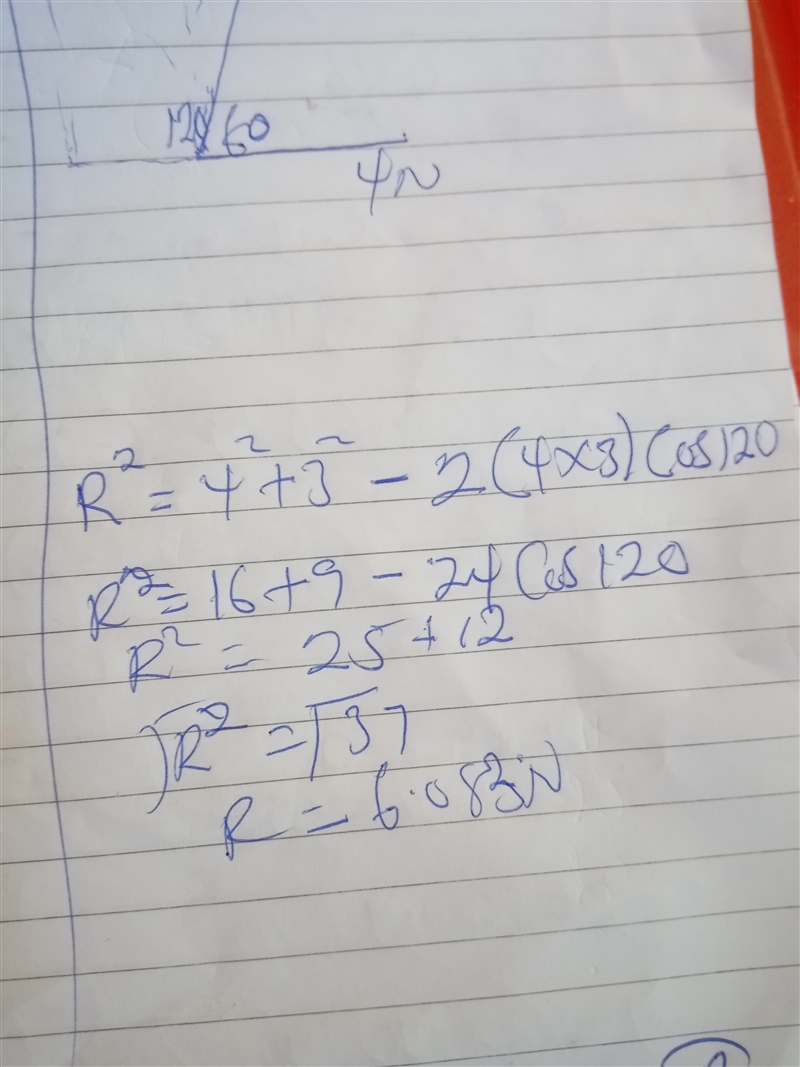 120 60
4N
R² = 4² + 3² - 2(4×3) Cos120
R² = 16+9 - 24 Cos 120
R² = 25 + 12
√R² = √37
R = 6.083N